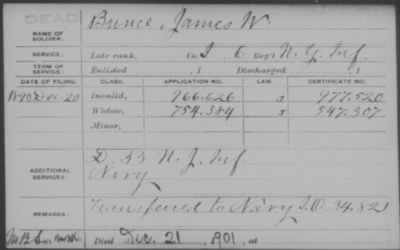 DEAD
NAME OF SOLDIER: Bunce, James W.
SERVICE: Late rank, Co. I, 6 Reg't N.Y. Inf
TERM OF SERVICE: Enlisted , 1 Discharged , 1
DATE OF FILING. CLASS. APPLICATION NO. LAW. CERTIFICATE NO.
1890 Dec 20 Invalid, 966.626 977.520
Widow, 754.384 547.307
Minor,
ADDITIONAL SERVICES: D. 33 N.J. Inf
Navy
REMARKS: Transferred to Navy I.O. 34.821
Died Dec. 21, 1901, at